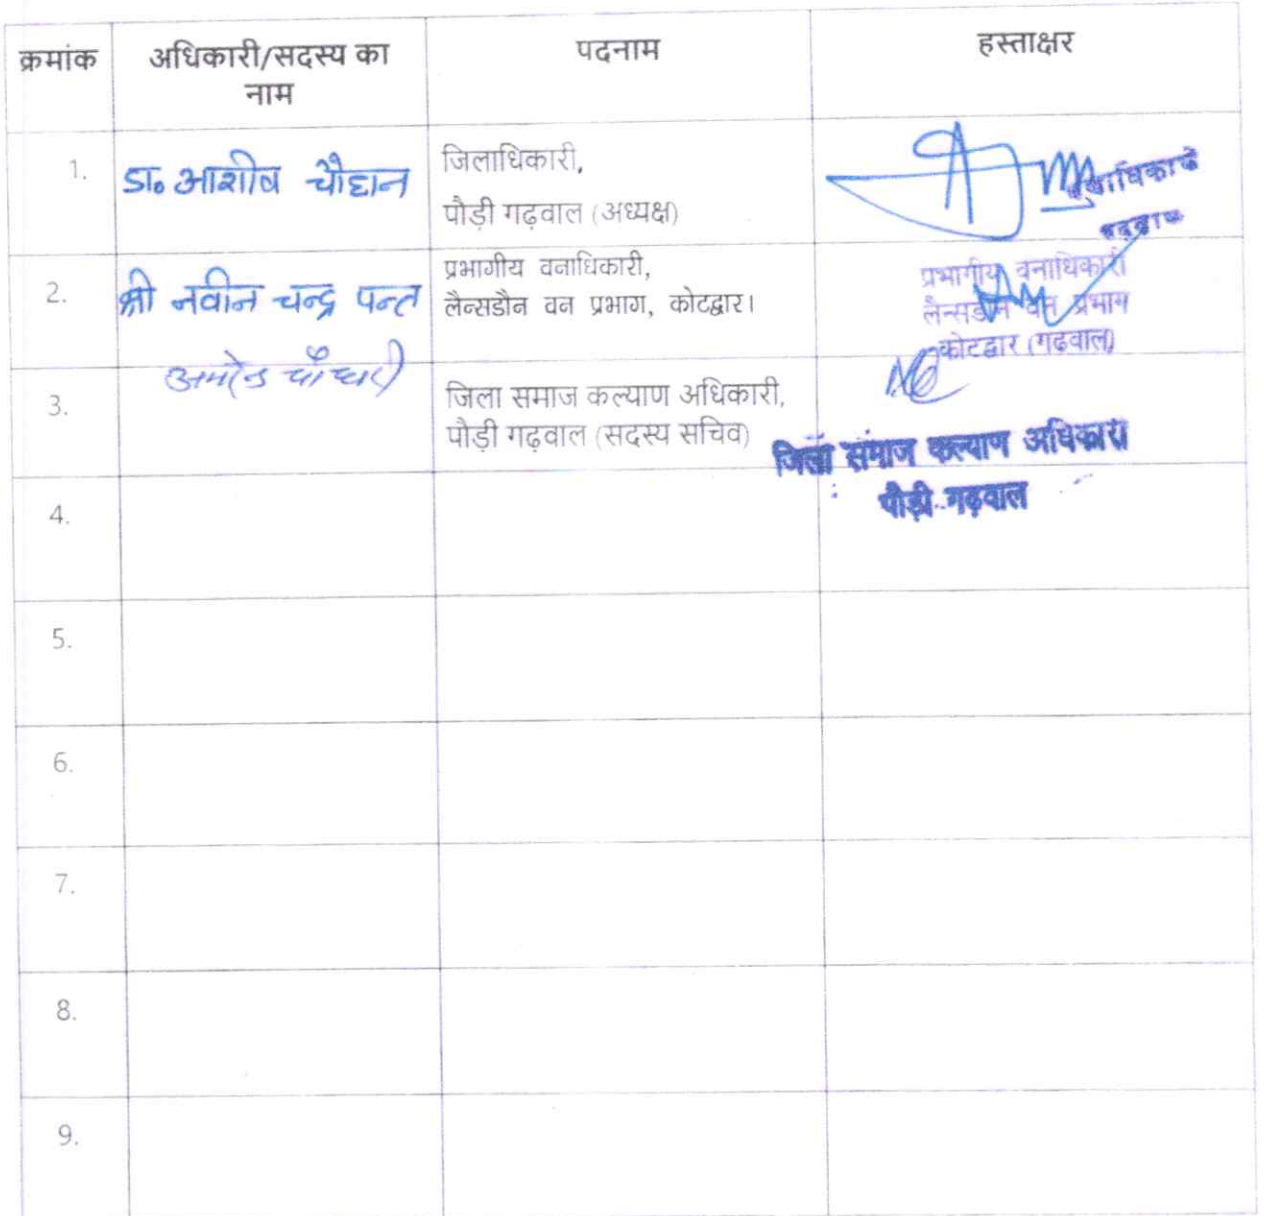 क्रमांक
अधिकारी/सदस्य का
नाम
पदनाम
हस्ताक्षर
1.
डा० आशीष चौहान
जिलाधिकारी,
पौड़ी गढ़वाल (अध्यक्ष)
2.
श्री नवीन चन्द्र पन्त
प्रभागीय वनाधिकारी,
लैन्सडौन वन प्रभाग, कोटद्वार।
प्रभागीय वनाधिकारी
लैन्सडौन वन प्रभाग
कोटद्वार (गढ़वाल)
3.
चौधरी
जिला समाज कल्याण अधिकारी,
पौड़ी गढ़वाल (सदस्य सचिव)
जिला समाज कल्याण अधिकारी
पौड़ी गढ़वाल
4.
5.
6.
7.
8.
9.